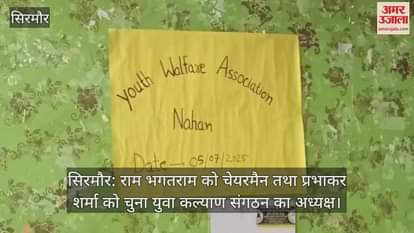 सिरमौर
अमर
उजाला
amarujala.com
Youth Walfare Association
Nahan
Date — 05/07/2025
सिरमौर: राम भगतराम को चेयरमैन तथा प्रभाकर
शर्मा को चुना युवा कल्याण संगठन का अध्यक्ष।